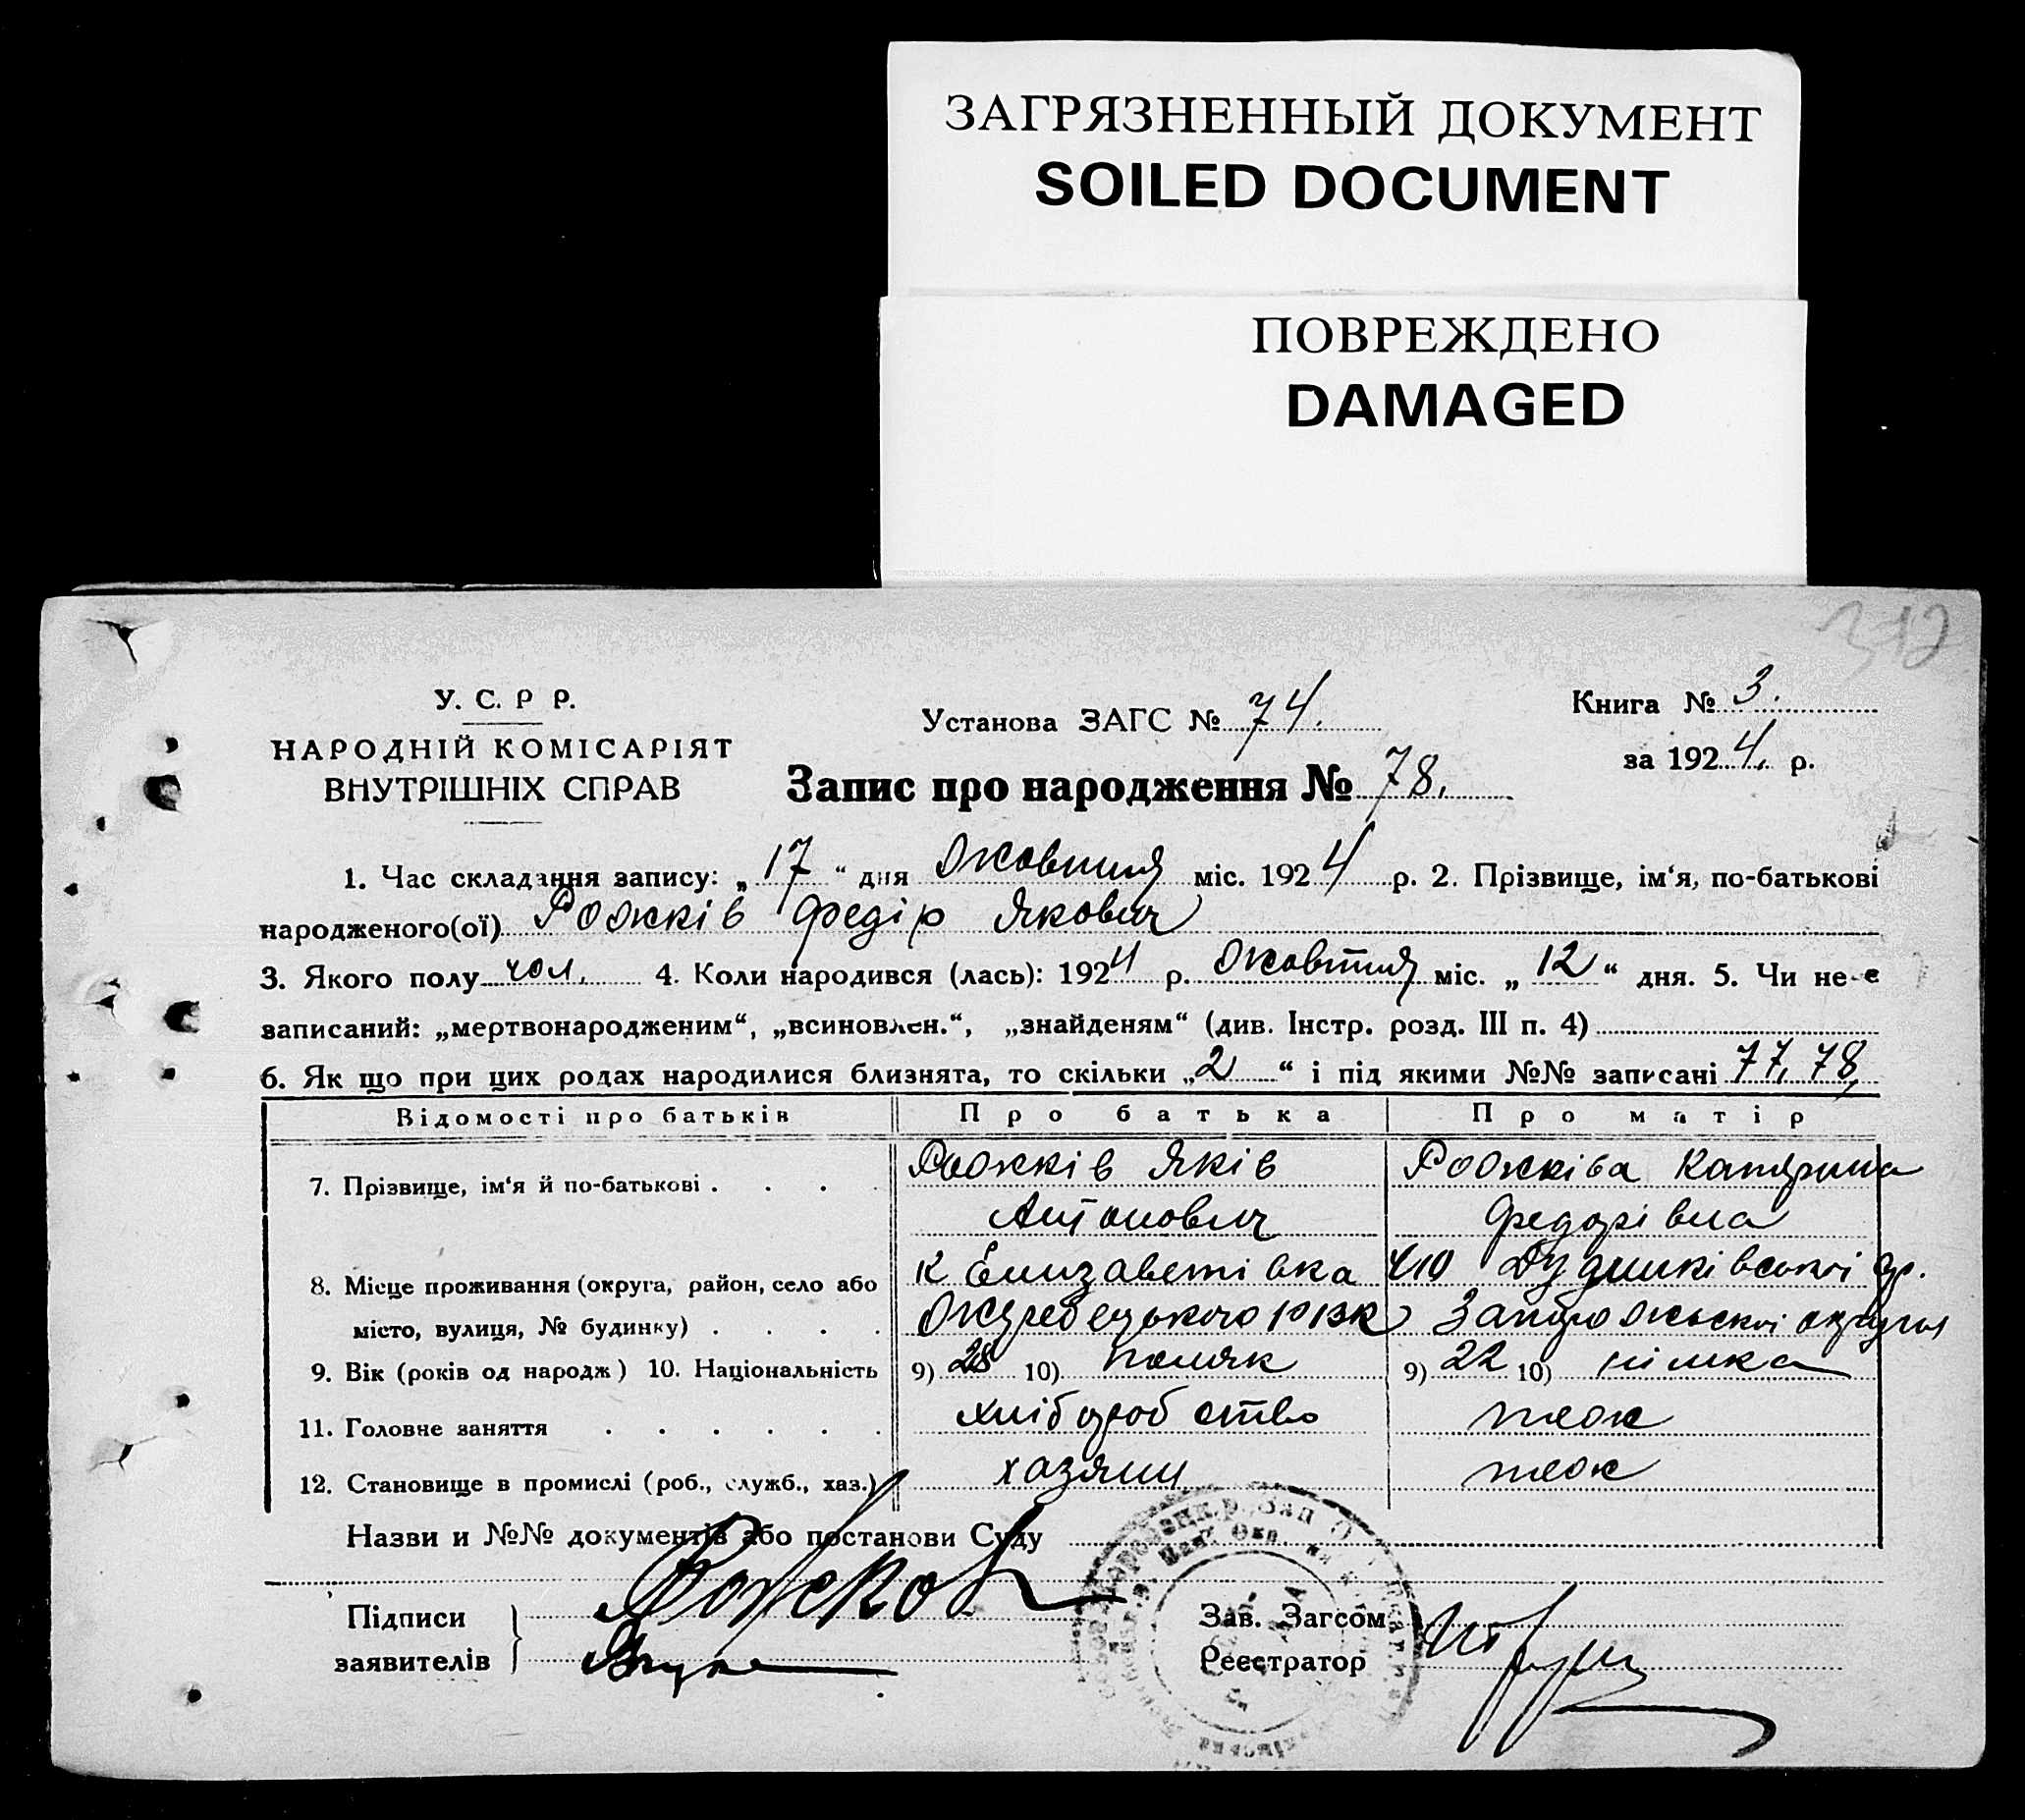 ЗАГРЯЗНЕННЫЙ ДОКУМЕНТ
SOILED DOCUMENT
ПОВРЕЖДЕНО
DAMAGED
312
У. С. Р Р.
НАРОДНІЙ КОМІСАРІЯТ
ВНУТРІШНІХ СПРАВ
Установа ЗАГС № 74.
Книга № 3.
за 1924. р.
Запис про народження № 78.
1. Час складання запису: „17“ дня Жовтня міс. 1924 р. 2. Прізвище, ім‘я, по-батькові
народженого(ої) Рожків Федір Якович
3. Якого полу чол. 4. Коли народився (лась): 1924 р. Жовтня міс. „12“ дня. 5. Чи не є
записаний: „мертвонародженим“, „всиновлен.“, „знайденям“ (див. Інстр. розд. III п. 4)
6. Як що при цих родах народилися близнята, то скільки „2“ і під якими №№ записані 77, 78,
Відомості про батьків Про батька Про матір
7. Прізвище, ім‘я й по-батькові . . . . Рожків Яків Рожківа Катрина
Антонович Федорівна
8. Місце проживання (округа, район, село або к Єлизаветівка
місто, вулиця, № будинку) . . . . Жеребецького Запорожської округи
9. Вік (років од народж) 10. Національність 9) 28 10) поляк 9) 22 10) німка
11. Головне заняття . . . . . . хліборобство теж
12. Становище в промислі (роб., служб., хаз.) хазяин теж
Назви и №№ документів або постанови Суду
Підписи Рожков
заявителів
Зав. Загсом
Реєстратор